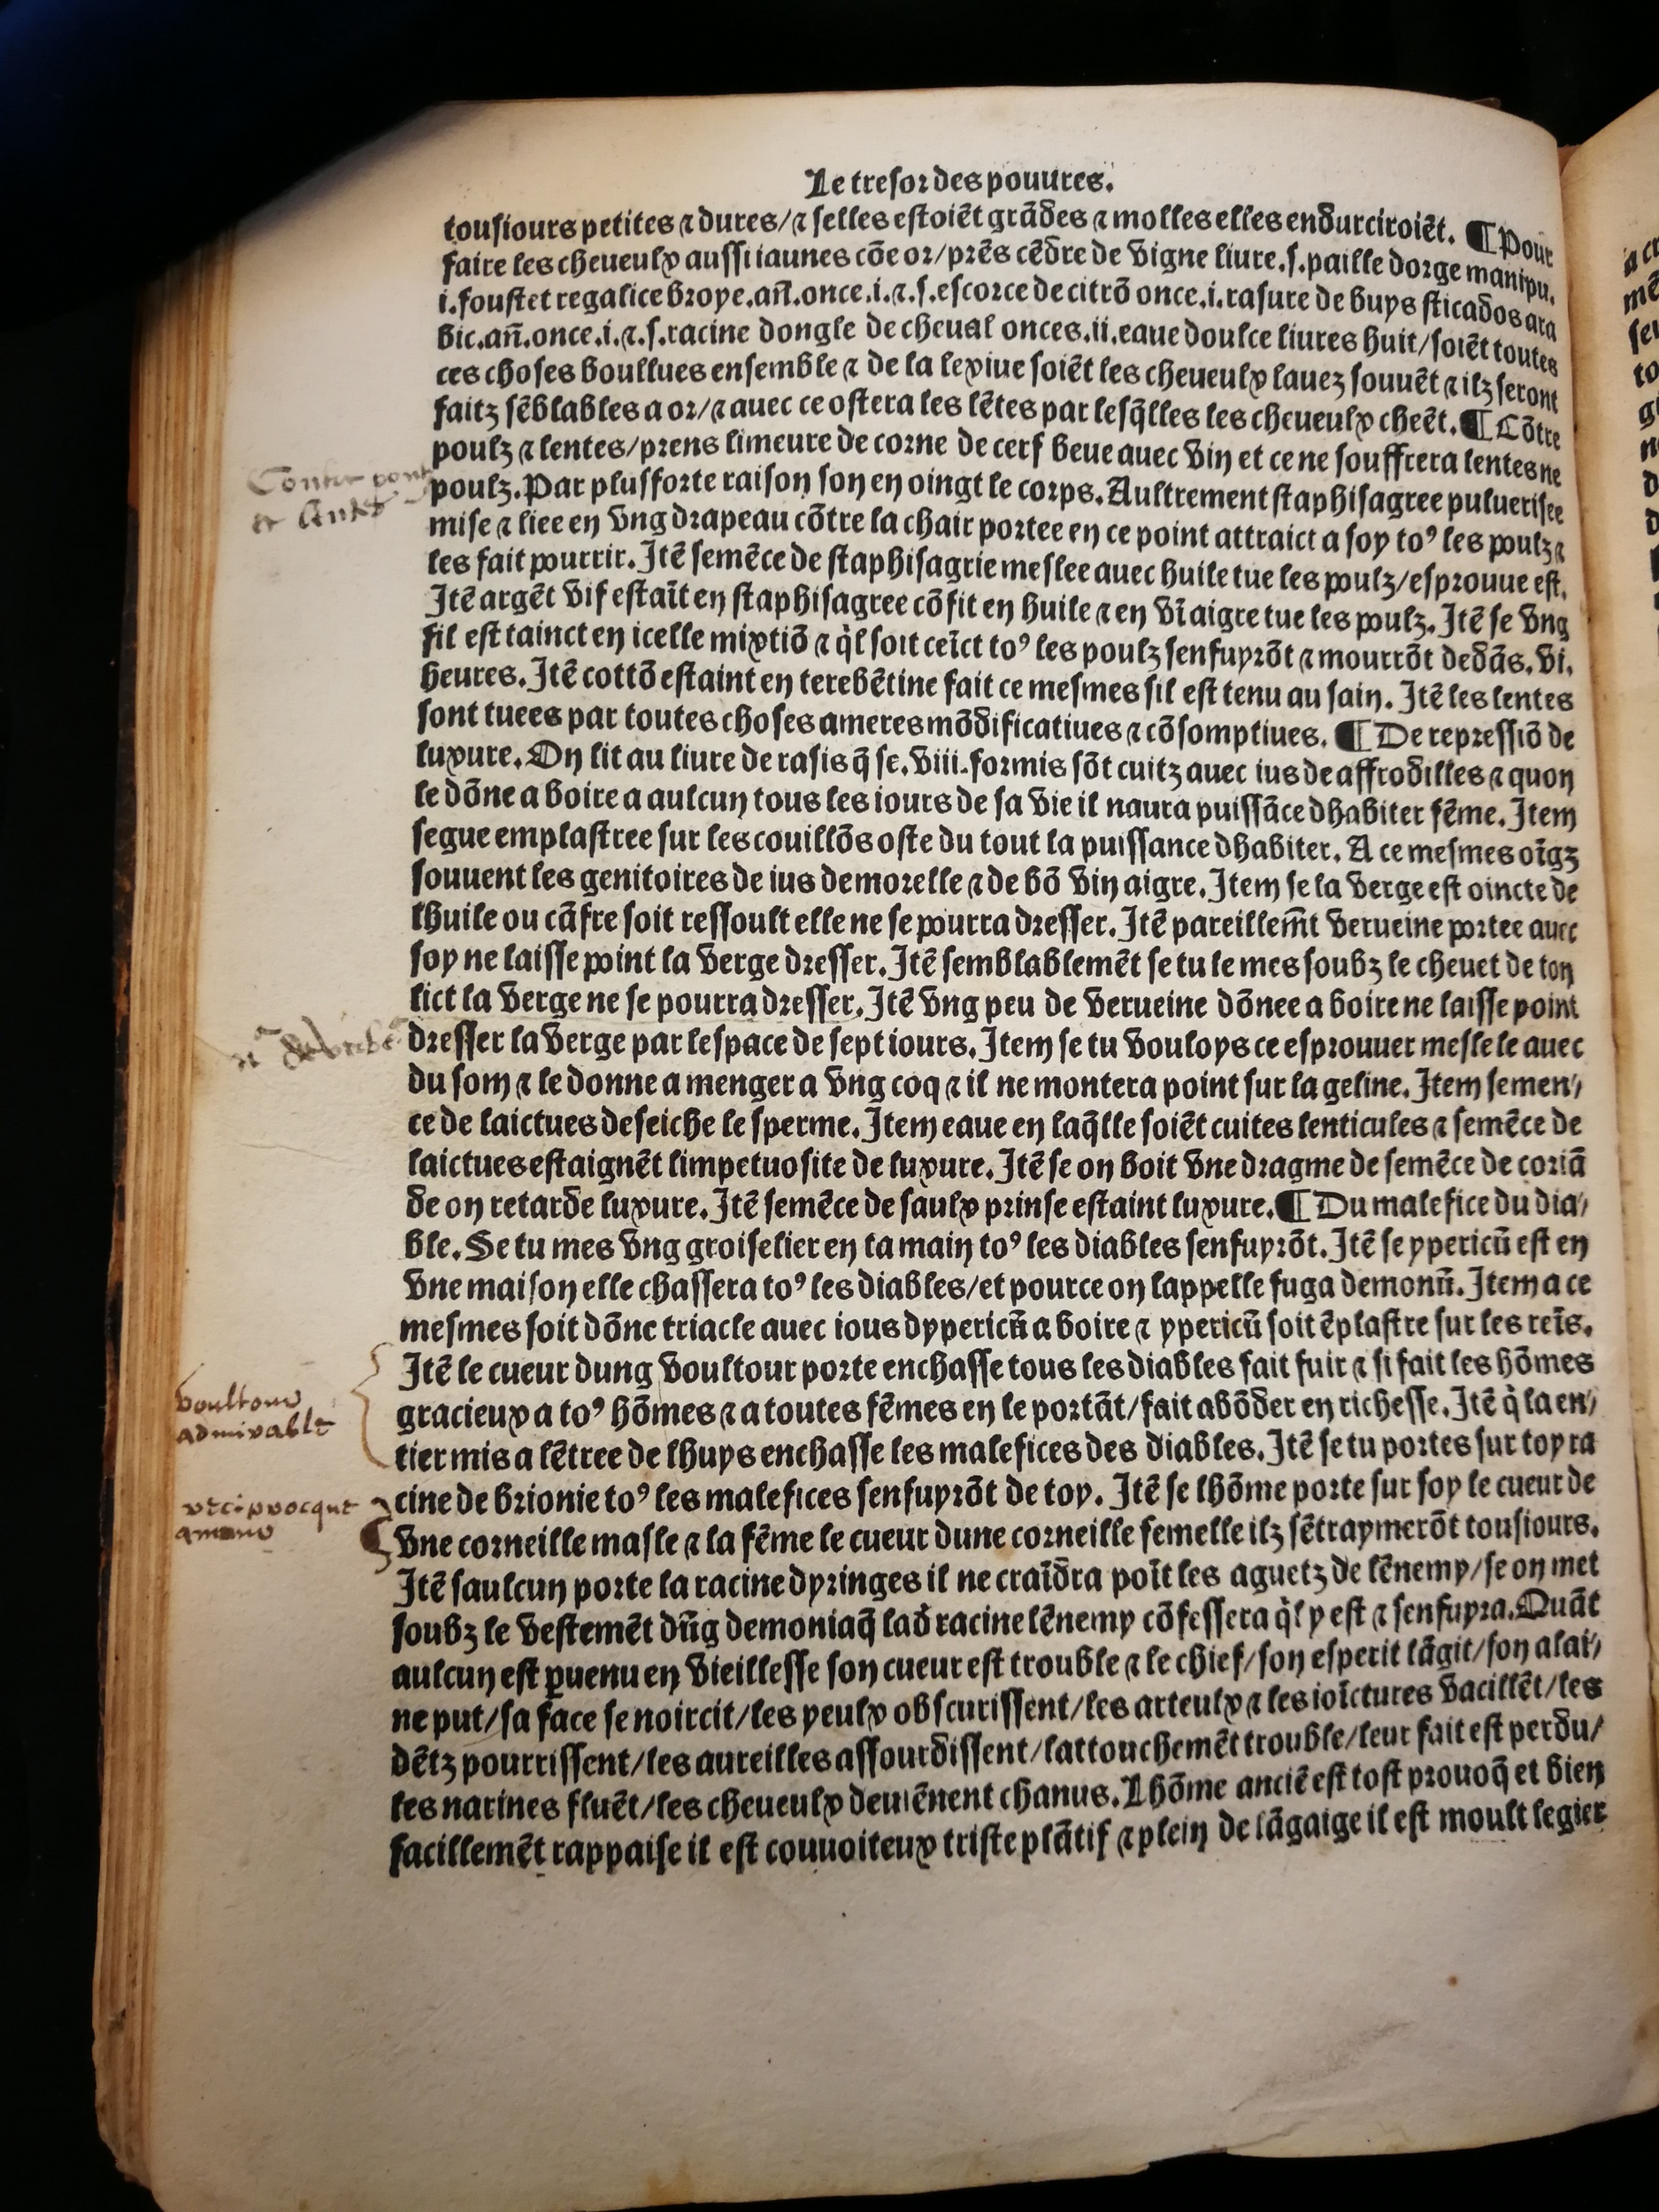 Le tresor des pouures.
tousiours petites ⁊ dures/⁊ selles estoiẽt grãdes ⁊ molles elles endurciroiẽt. ¶ Pour
faire les cheueulx aussi iaunes cõe or/prẽs cẽdre de vigne liure.s.paille dorge manipu.
i.foustet regalice broye.añ.once.i.⁊.s.escorce de citrõ once.i.rasure de buys sticados ara
bic.añ.once.i.⁊.s.racine dongle de cheual onces.ii.eaue doulce liures huit/soiẽt toutes
ces choses boullues ensemble ⁊ de la lexiue soiẽt les cheueulx lauez souuẽt ⁊ ilz seront
faitz sẽblables a or/⁊ auec ce ostera les lẽtes par lesq̃lles les cheueulx cheẽt. ¶ Cõtre
poulz ⁊ lentes/prens limeure de corne de cerf beue auec vin et ce ne souffrera lentes ne
poulz. Par plusforte raison son en oingt le corps. Aultrement staphisagree puluerisee
mise ⁊ liee en vng drapeau cõtre la chair portee en ce point attraict a soy toꝰ les poulz ⁊
les fait pourrir. Itẽ semẽce de staphisagrie meslee auec huile tue les poulz/esprouue est.
Itẽ argẽt vif estaĩt en staphisagree cõfit en huile ⁊ en vĩaigre tue les poulz. Itẽ se vng
fil est tainct en icelle mixtiõ ⁊ q̇l soit ceĩct toꝰ les poulz senfuyrõt ⁊ mourrõt dedãs. vi.
heures. Itẽ cottõ estaint en terebẽtine fait ce mesmes sil est tenu au sain. Itẽ les lentes
sont tuees par toutes choses ameres mõdificatiues ⁊ cõsomptiues. ¶ De repressiõ de
luxure. On lit au liure de rasis q̃ se. viii. formis sõt cuitz auec ius de affrodilles ⁊ quon
le dõne a boire a aulcun tous les iours de sa vie il naura puissãce dhabiter fẽme. Item
segue emplastree sur les couillõs oste du tout la puissance dhabiter. A ce mesmes oĩgz
souuent les genitoires de ius de morelle ⁊ de bõ vin aigre. Item se la verge est oincte de
lhuile ou cãfre soit ressoult elle ne se pourra dresser. Itẽ pareillem̃t verueine portee auec
soy ne laisse point la verge dresser. Itẽ semblablemẽt se tu le mes soubz le cheuet de ton
lict la verge ne se pourra dresser. Itẽ vng peu de verueine dõnee a boire ne laisse point
dresser la verge par lespace de sept iours. Item se tu vouloys ce esprouuer mesle le auec
du som ⁊ le donne a menger a vng coq ⁊ il ne montera point sur la geline. Item semen/
ce de laictues deseiche le sperme. Item eaue en laq̃lle soiẽt cuites lenticules ⁊ semẽce de
laictues estaignẽt limpetuosite de luxure. Itẽ se on boit vne dragme de semẽce de coriã
de on retarde luxure. Itẽ semẽce de saulx prinse estaint luxure. ¶ Du malefice du dia/
ble. Se tu mes vng groiselier en ta main toꝰ les diables senfuyrõt. Itẽ se ypericũ est en
vne maison elle chassera toꝰ les diables/et pource on lappelle fuga demonũ. Item a ce
mesmes soit dõne triacle auec ious dypericũ a boire ⁊ ypericũ soit ẽplastre sur les reĩs.
Itẽ le cueur dung voultour porte enchasse tous les diables fait fuir ⁊ si fait les hõmes
gracieux a toꝰ hõmes ⁊ a toutes fẽmes en le portãt/fait abõder en richesse. Itẽ q̇ la en/
tier mis a lẽtree de lhuys enchasse les malefices des diables. Itẽ se tu portes sur toy ra
cine de brionie toꝰ les malefices senfuyrõt de toy. Itẽ se lhõme porte sur soy le cueur de
vne corneille masle ⁊ la fẽme le cueur dune corneille femelle ilz sẽtraymerõt tousiours.
Itẽ saulcun porte la racine dyringes il ne craĩdra poĩt les aguetz de lẽnemy/se on met
soubz le vestemẽt dũg demoniaq̃ lad̾ racine lẽnemy cõfessera q̇l y est ⁊ senfuyra. Quãt
aulcun est ꝑuenu en vieillesse son cueur est trouble ⁊ le chief/son esperit lãgit/son alai/
ne put/sa face se noircit/les yeulx obscurissent/les arteulx ⁊ les ioĩctures vacillẽt/les
dẽtz pourrissent/les aureilles assourdissent/lattouchemẽt trouble/leur fait est perdu/
les narines fluẽt/les cheueulx deuiẽnent chanus. Lhõme anciẽ est tost prouoq̃ et bien
facillemẽt rappaise il est couuoiteux triste plãtif ⁊ plein de lãgaige il est moult legier
voultour
admirable
reciprocque
amour